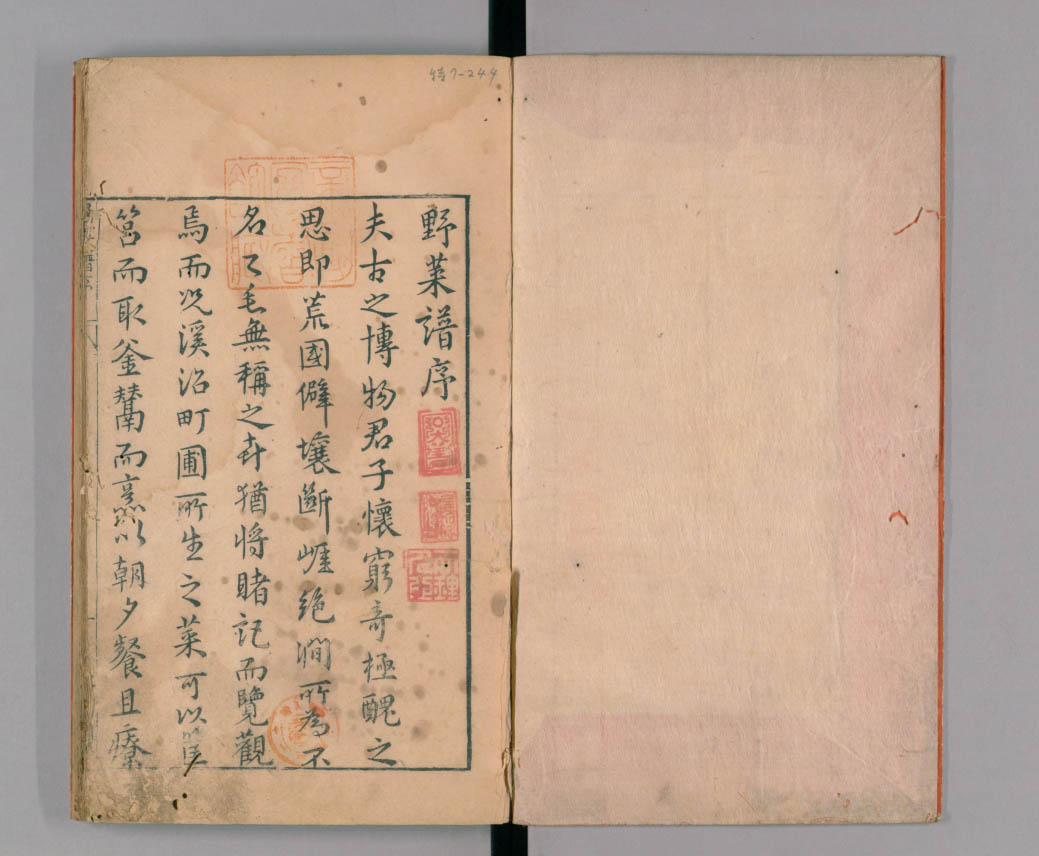 特7-244
野菜譜序
夫古之博物君子懷窮奇極醜之
思即荒國僻壤斷崕絶澗所為不
名之毛無稱之卉猶將睹記而覽觀
焉而况溪沼町圃所生之菜可以筐
筥而取釜鬵而烹以朝夕餐且療